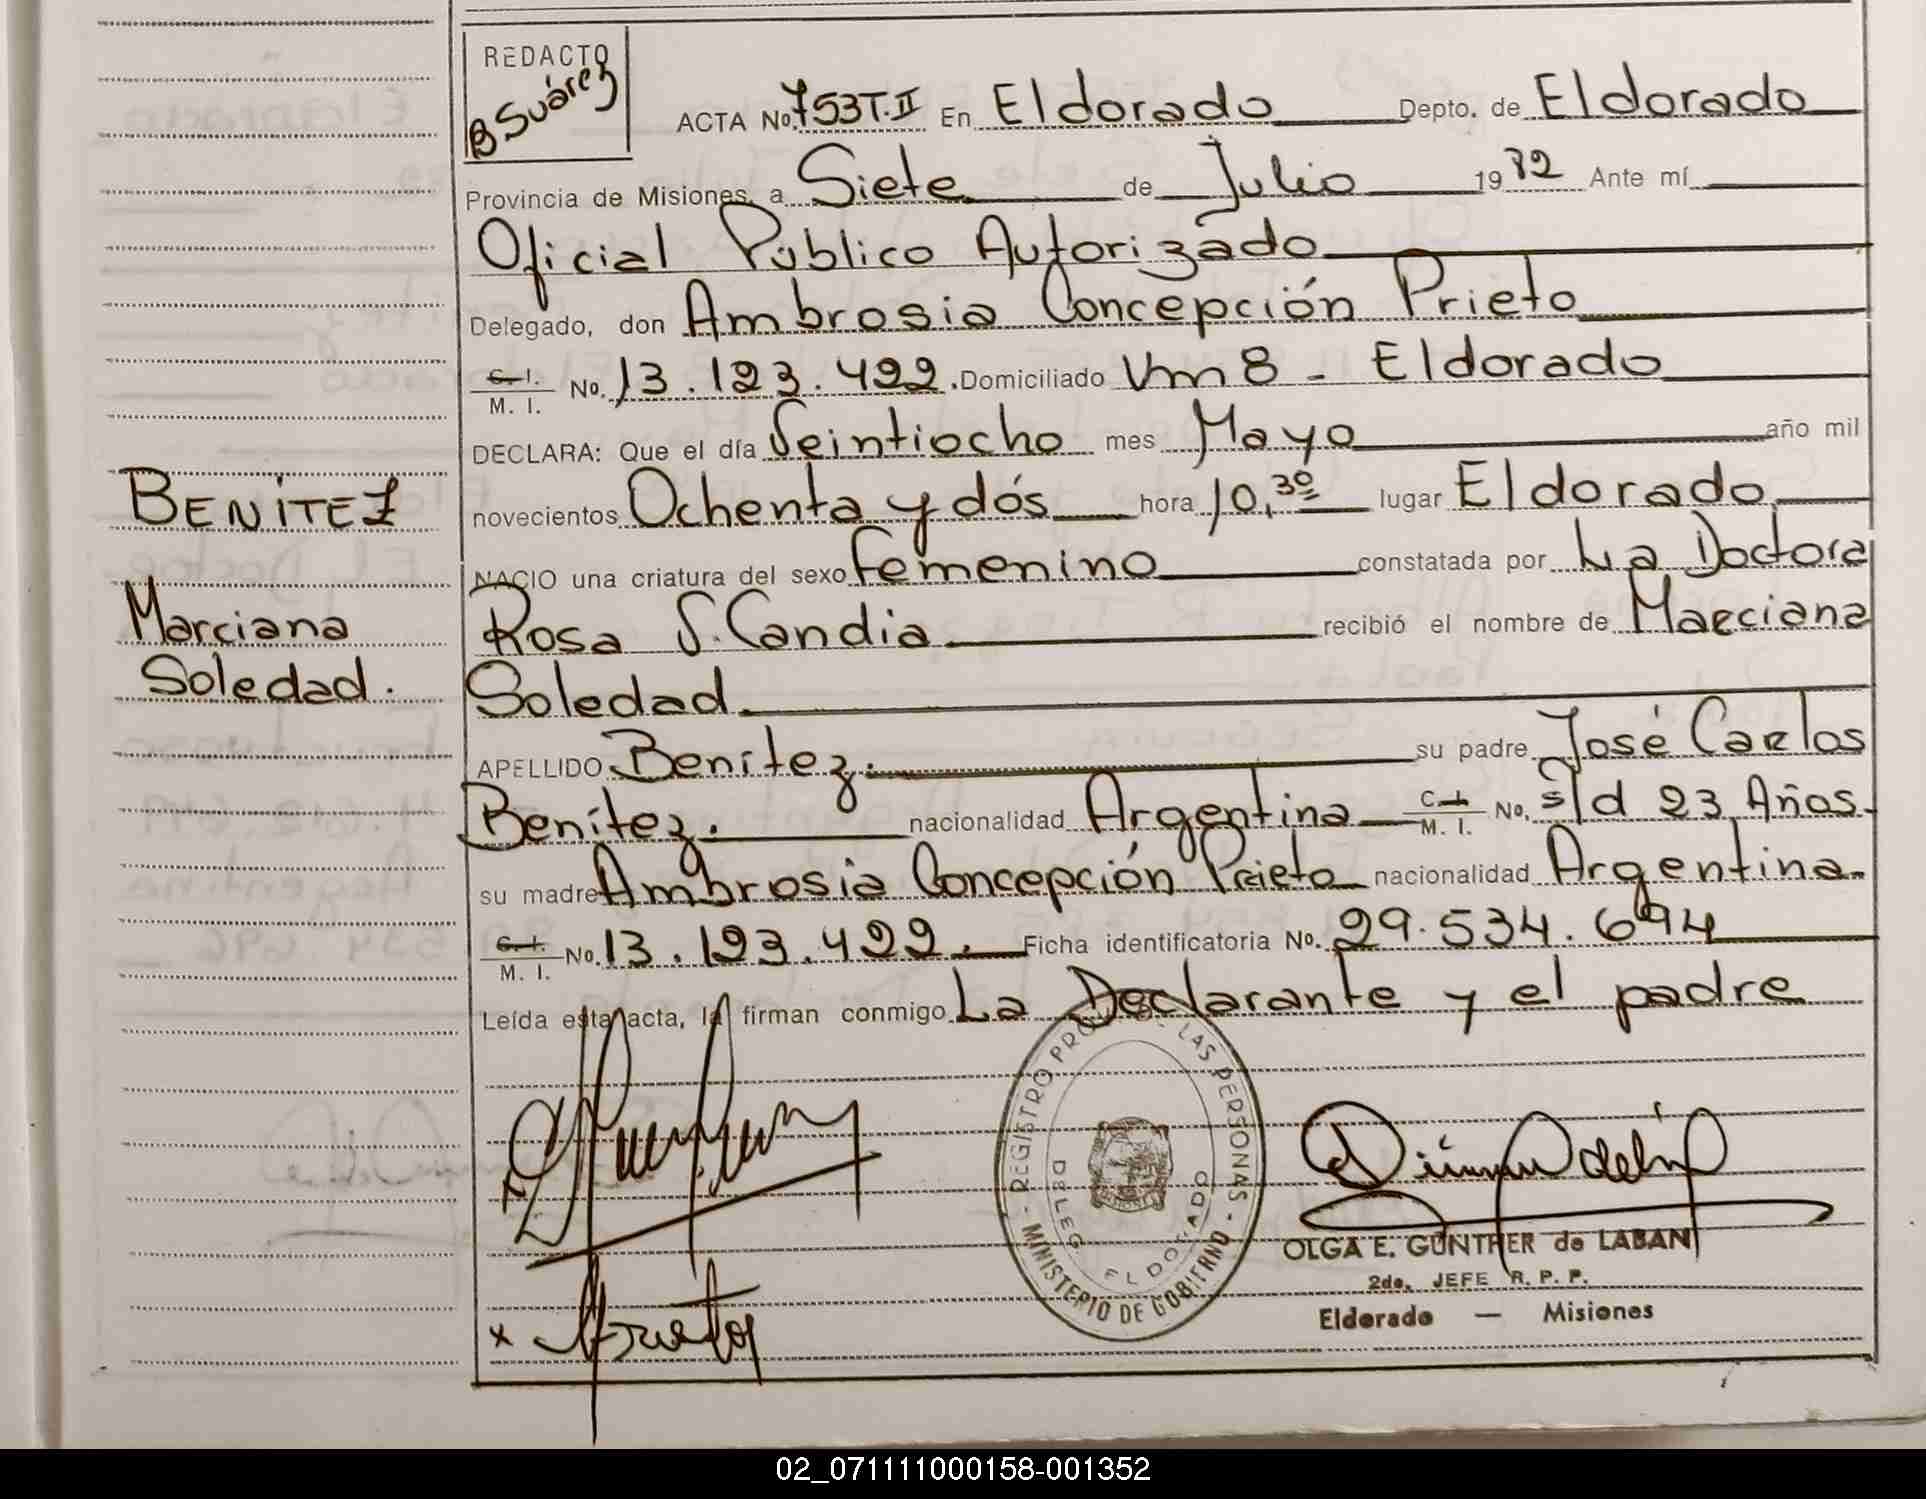 REDACTO
B Suárez
ACTA No. 753 T. II En Eldorado Depto. de Eldorado
Provincia de Misiones, a Siete de Julio 1982 Ante mí
Oficial Público Autorizado
Delegado, don Ambrosia Concepción Prieto
C. I. / M. I. No. 13.123.422. Domiciliado Km 8 - Eldorado
DECLARA: Que el día Veintiocho mes Mayo año mil
novecientos Ochenta y dós hora 10,30 lugar Eldorado
NACIO una criatura del sexo Femenino constatada por La Doctora
Rosa S. Candia recibió el nombre de Marciana
Soledad
APELLIDO Benítez. su padre José Carlos
Benítez. nacionalidad Argentina C. I. / M. I. No. s/d 23 Años.
su madre Ambrosia Concepción Prieto nacionalidad Argentina.
C. I. / M. I. No. 13.123.422. Ficha identificatoria No. 29.534.694
Leída esta acta, la firman conmigo La Declarante y el padre
BENÍTEZ
Marciana
Soledad.
- REGISTRO PROV. DE LAS PERSONAS -
MINISTERIO DE GOBIERNO
DELEG. ELDORADO
OLGA E. GUNTHER de LABAN
2da. JEFE R. P. P.
Eldorado — Misiones
02_071111000158-001352